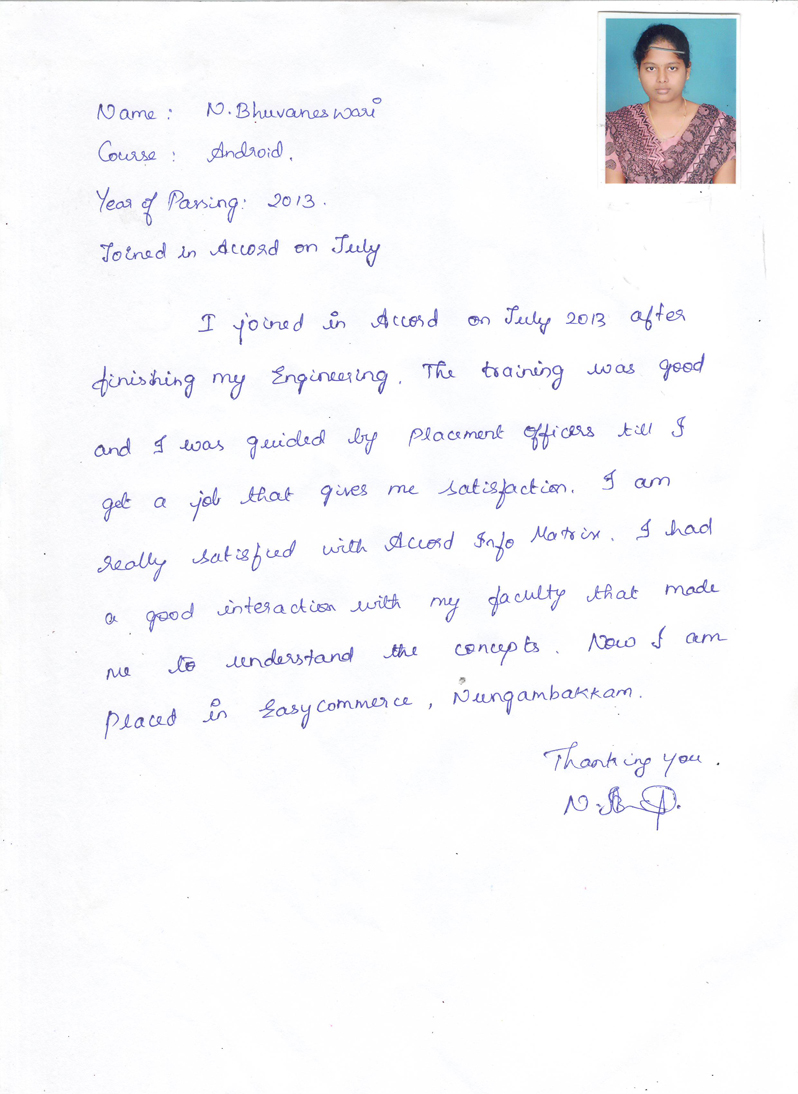 Name : N. Bhuvaneswari
Course : Android.
Year of Passing: 2013.
Joined in Accord on July
I joined in Accord on July 2013 after
finishing my Engineering. The training was good
and I was guided by placement officers till I
get a job that gives me satisfaction. I am
really satisfied with Accord Info Matrix. I had
a good interaction with my faculty that made
me to understand the concepts. Now I am
placed in Easycommerce, Nungambakkam.
Thanking you.
N.